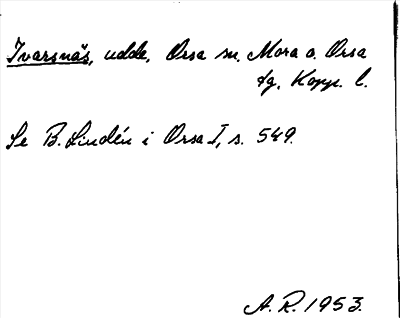 Ivarsnäs, udde, Orsa sn. Mora o. Orsa
tg. Kopp. l.
Se B. Lindén i Orsa I, s. 549.
A. R. 1953.